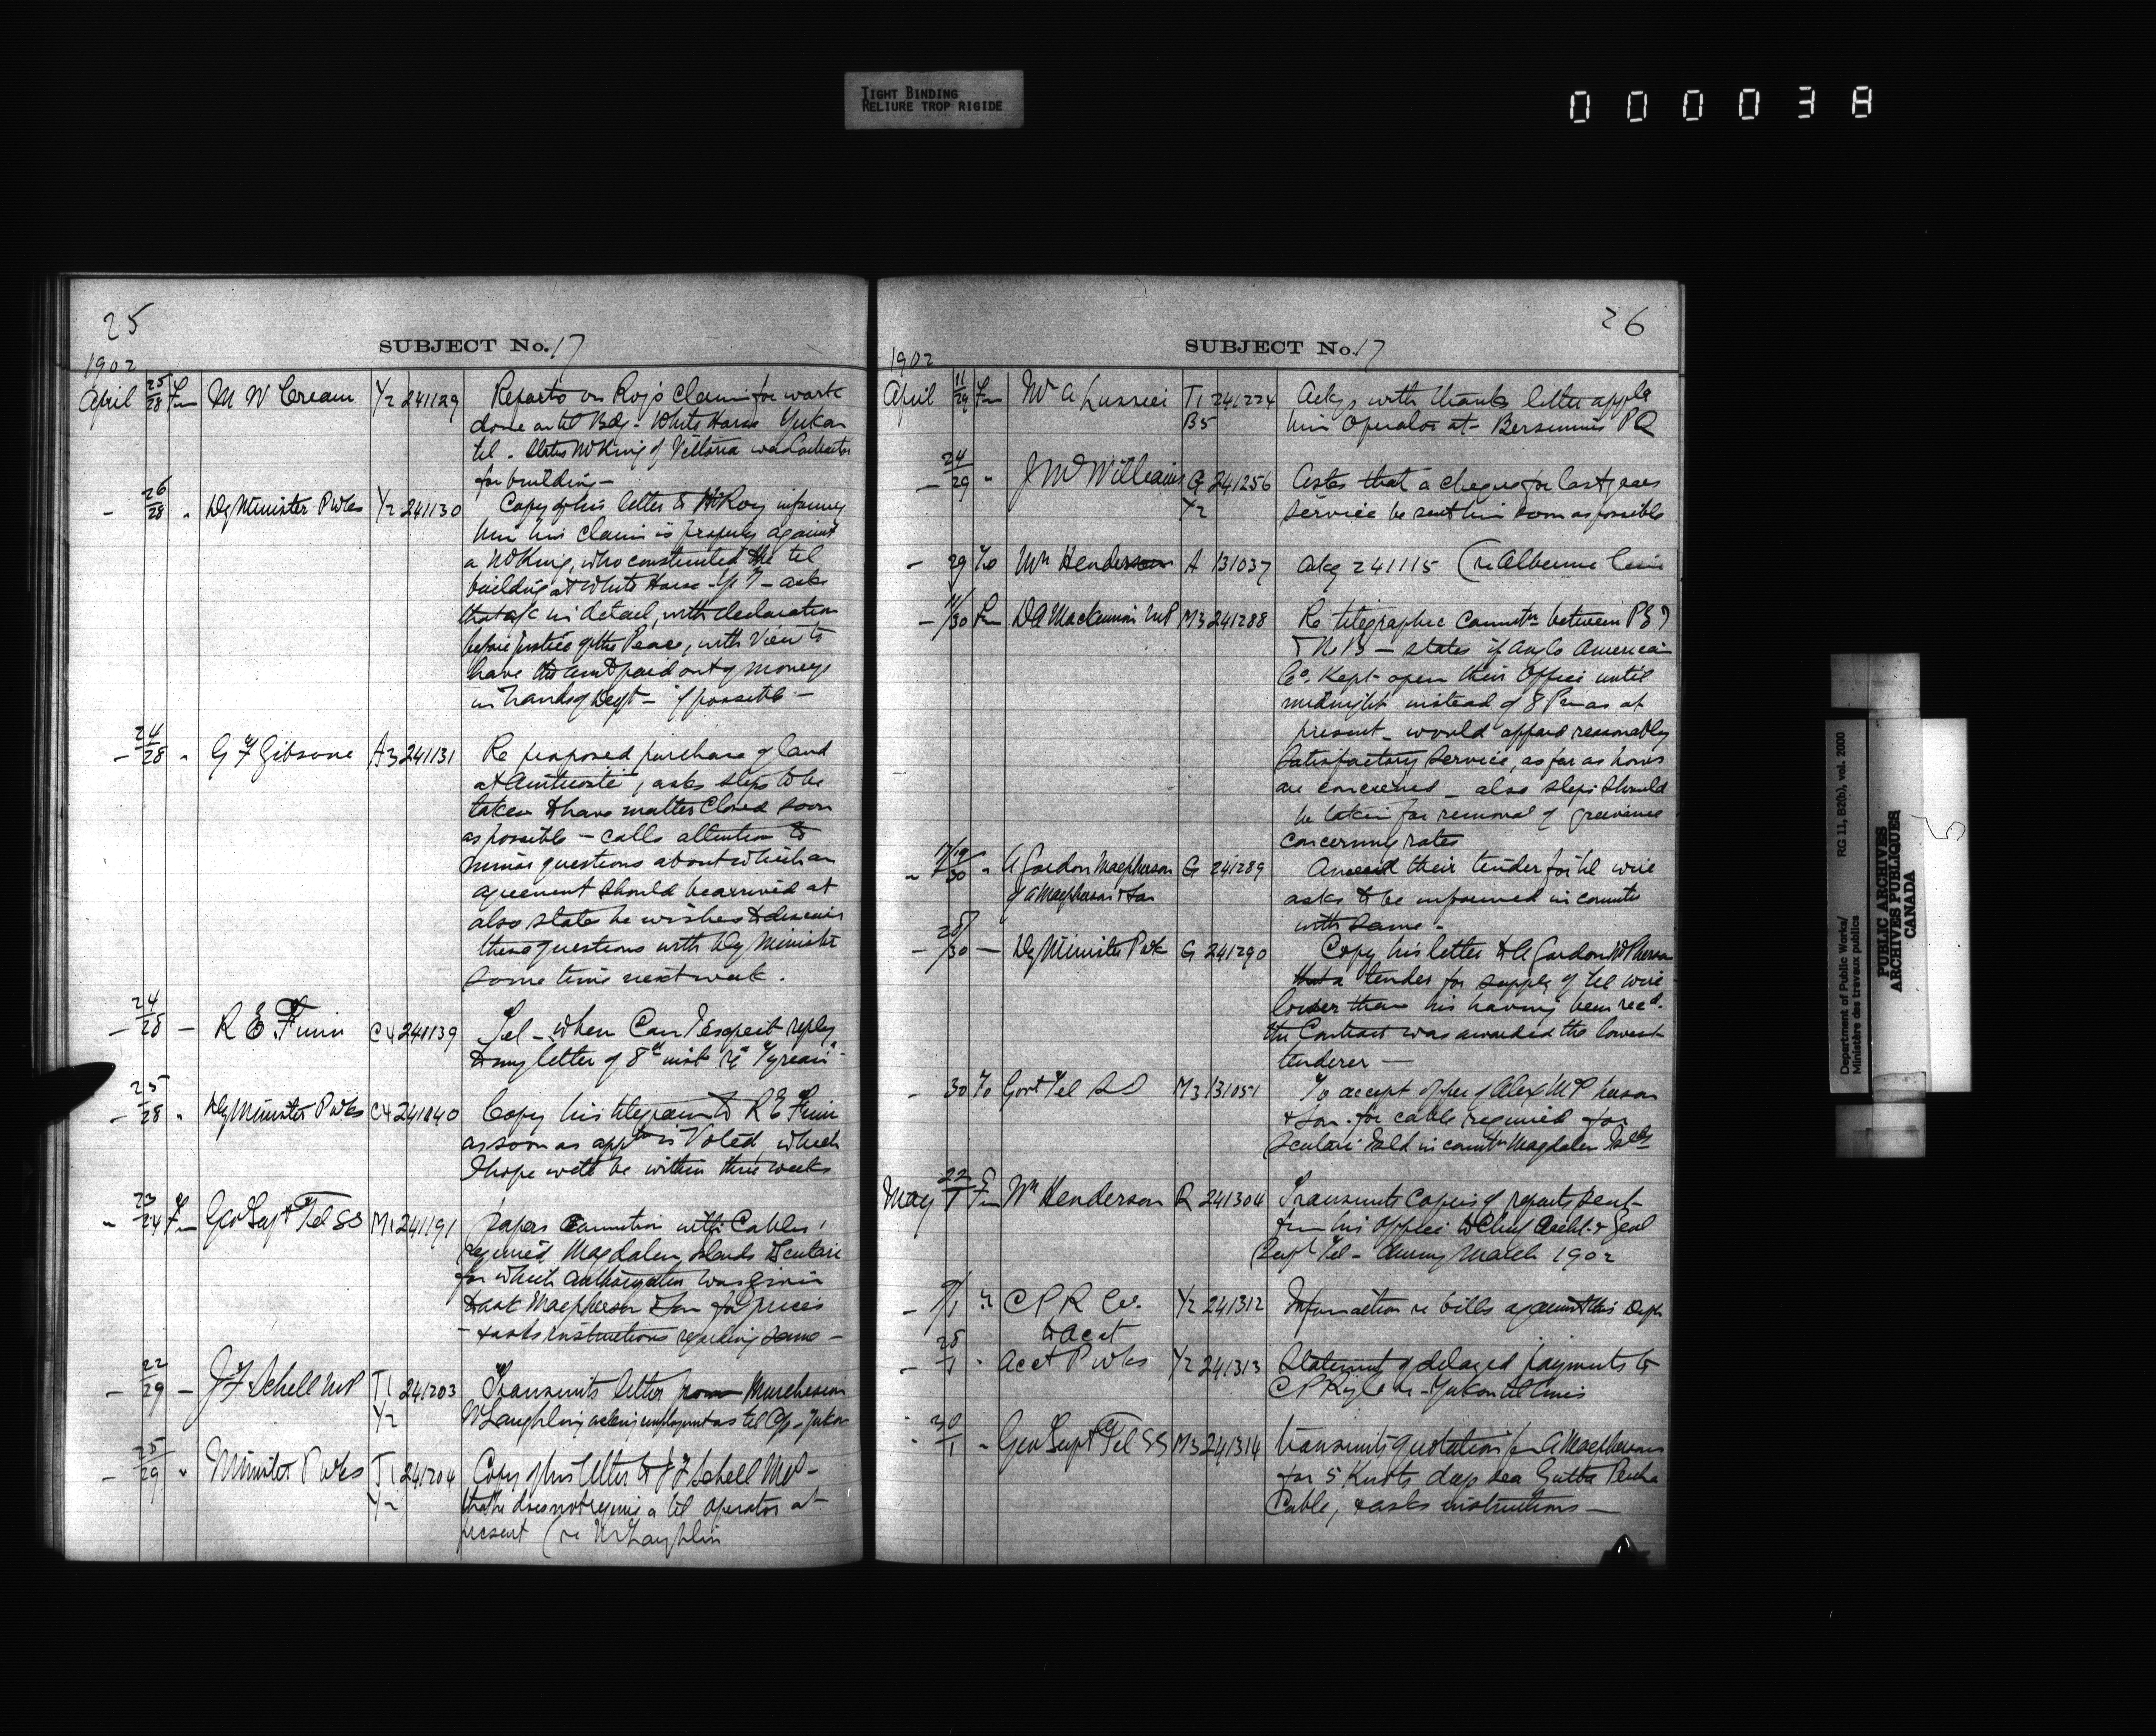 TIGHT BINDING
RELIURE TROP RIGIDE
000038
25
SUBJECT No. 17
1902
April 25/28 Fm M W Cream Y2 241129 Reports on Roy's claim for work
done on tel Bdg. White Horse Yukon
tel. States McKing of Victoria was Contractor
for building —
- 26/28 " Dy Minister P Wks Y2 241130 Copy of his letter to Roy informing
him his claim is properly against
a McKing, who constructed the tel
building at White Horse Y T — asks
that a/c in detail, with declaration
before justice of the Peace, with view to
have the amt paid out of moneys
in hands of Dept — if possible —
- 24/28 " G F Gibsone A3 241131 Re proposed purchase of land
at Anticosti, asks steps to be
taken to have matter closed soon
as possible — calls attention to
minor questions about which an
agreement should be arrived at
also states he wishes to discuss
these questions with Dy Minister
some time next week.
- 24/28 — R E Finn C4 241139 Tel — when can I expect reply
to my letter of 8th inst re "Tyrean"
- 25/28 " Dy Minister P Wks C4 241140 Copy his telegram to R E Finn
as soon as apptn is Voted, which
I hope will be within three weeks
" 23/24 Fm Gov Supt Tel SS M1 241191 papers connection with Cables
required Magdalen Islands & Scutari
for which authorization was given
to ask Macpherson & Son for prices
— & asks instructions regarding same —
- 22/29 — J F Schell MP T1 241203 Transmits letter from Murcheson
Y2 McLaughlin asking employment as tel Op. Yukon
- 25/29 " Minister P Wks T1 241204 Copy of his letter to J F Schell MP —
Y2 that he does not require a tel operator at
present (re McLaughlin
26
SUBJECT No. 17
1902
April 11/29 Fm Mr A Lussier T1 241224 Ackgs with thanks letter appg
B5 him Operator at Bersimis PQ
- 24/29 " J McWilliams G 241256 Asks that a cheque for last years
Y2 service be sent him soon as possible
- 29 To Wm Henderson A 131037 Ackg 241115 (re Alberni Line
- 11/30 Fm D A Mackinnon MP M3 241288 Re telegraphic connectn between PEI
& N B — states if Anglo American
Co. kept open their Office until
midnight instead of 8 Pm as at
present — would afford reasonably
satisfactory service, as far as hours
are concerned — also steps should
be taken for removal of grievance
concerning rates
" A Gordon Macpherson G 241289 their tender for tel wire
of A Macpherson & Son asks to be informed in connectn
with same —
- 28/30 — Dy Minister P Wk G 241290 Copy his letter to A Gordon McPherson
that a tender for supply of tel wire
lower than his having been recd.
the Contract was awarded the lowest
tenderer —
- 30 To Govt Tel SS M3 131051 To accept offer of Alex McPherson
& Son. for cable required for
Scutari in connectn Magdalen Islds
May 22/1 Fm Wm Henderson R 241304 Transmits copies of reports sent
from his office to Chief Archt. & Genl
Supt Tel — during March 1902
- 9/1 " C P R Co. Y2 241312 Information re bills against this Dept
to Acct
- 28/1 " Acct P Wks Y2 241313 Statement of delayed payments to
C P Ry Co re — Yukon tel lines
- 30/1 " Gov Supt Tel SS M3 241314 transmits quotation fm A Macpherson
for 5 Knots deep sea Gutta Percha
Cable, & asks instructions —
Department of Public Works/
Ministère des travaux publics
RG 11, B2(b), vol. 2000
PUBLIC ARCHIVES
ARCHIVES PUBLIQUES
CANADA